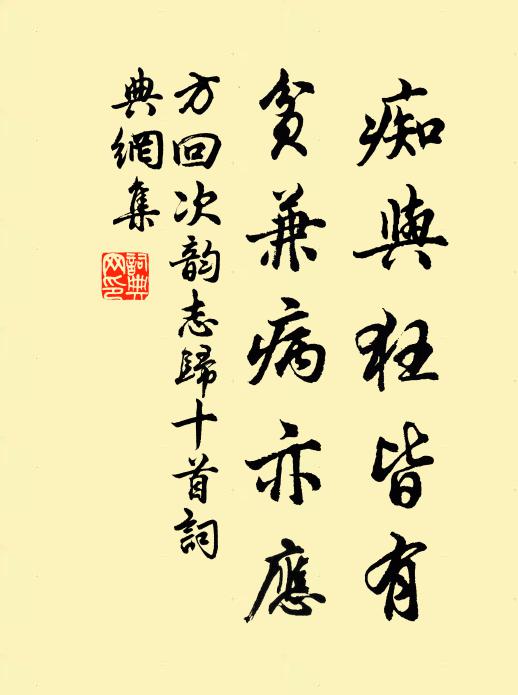 痴與狂皆有
貧兼病亦應
方回次韵志歸十首詞
典網集
詞典网印